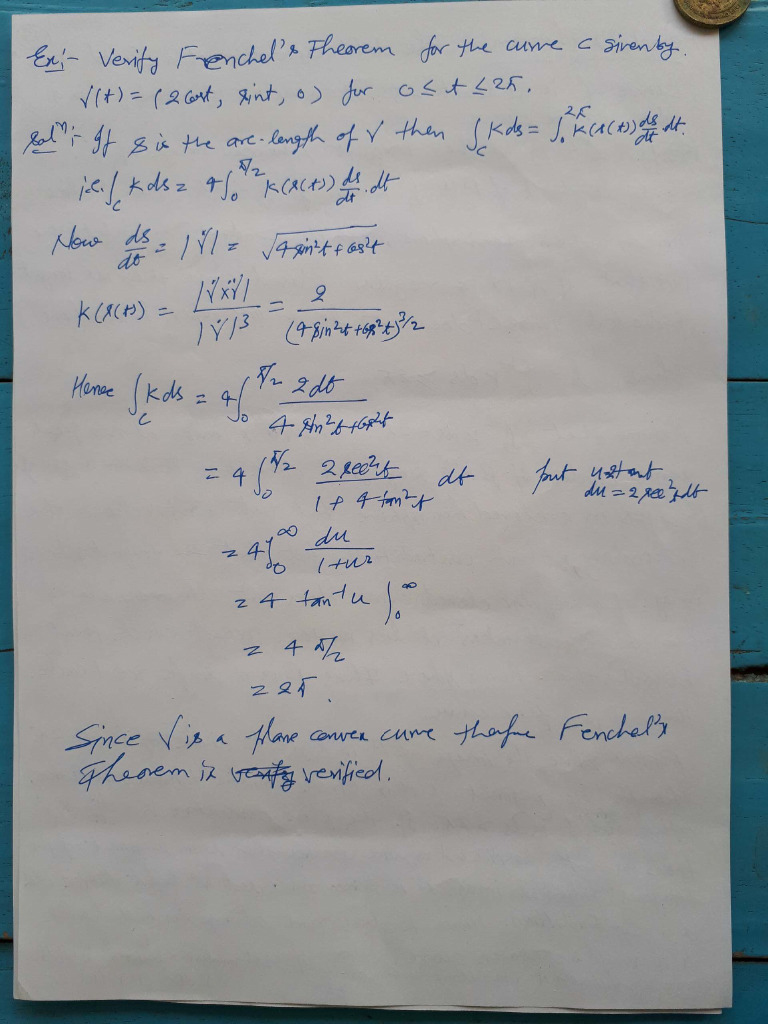 Ex:- Verify Fenchel's Theorem for the curve C given by.
γ(t) = (2 cost, sint, 0) for 0 ≤ t ≤ 2π.
Solⁿ:- If s is the arc-length of γ then ∫_C K ds = ∫_0^{2π} K(s(t)) ds/dt dt.
i.e. ∫_C K ds = 4∫_0^{π/2} K(s(t)) ds/dt . dt
Now ds/dt = |γ̇| = √(4 sin²t + cos²t)
K(s(t)) = |γ̇ × γ̈| / |γ̇|³ = 2 / (4 sin²t + cos²t)^{3/2}
Hence ∫_C K ds = 4∫_0^{π/2} 2 dt / (4 sin²t + cos²t)
= 4∫_0^{π/2} 2 sec²t / (1 + 4 tan²t) dt put u = 2 tant
du = 2 sec²t dt
= 4∫_0^∞ du / (1 + u²)
= 4 tan⁻¹u |_0^∞
= 4 π/2
= 2π.
Since γ is a plane convex curve therefore Fenchel's
Theorem is verified.